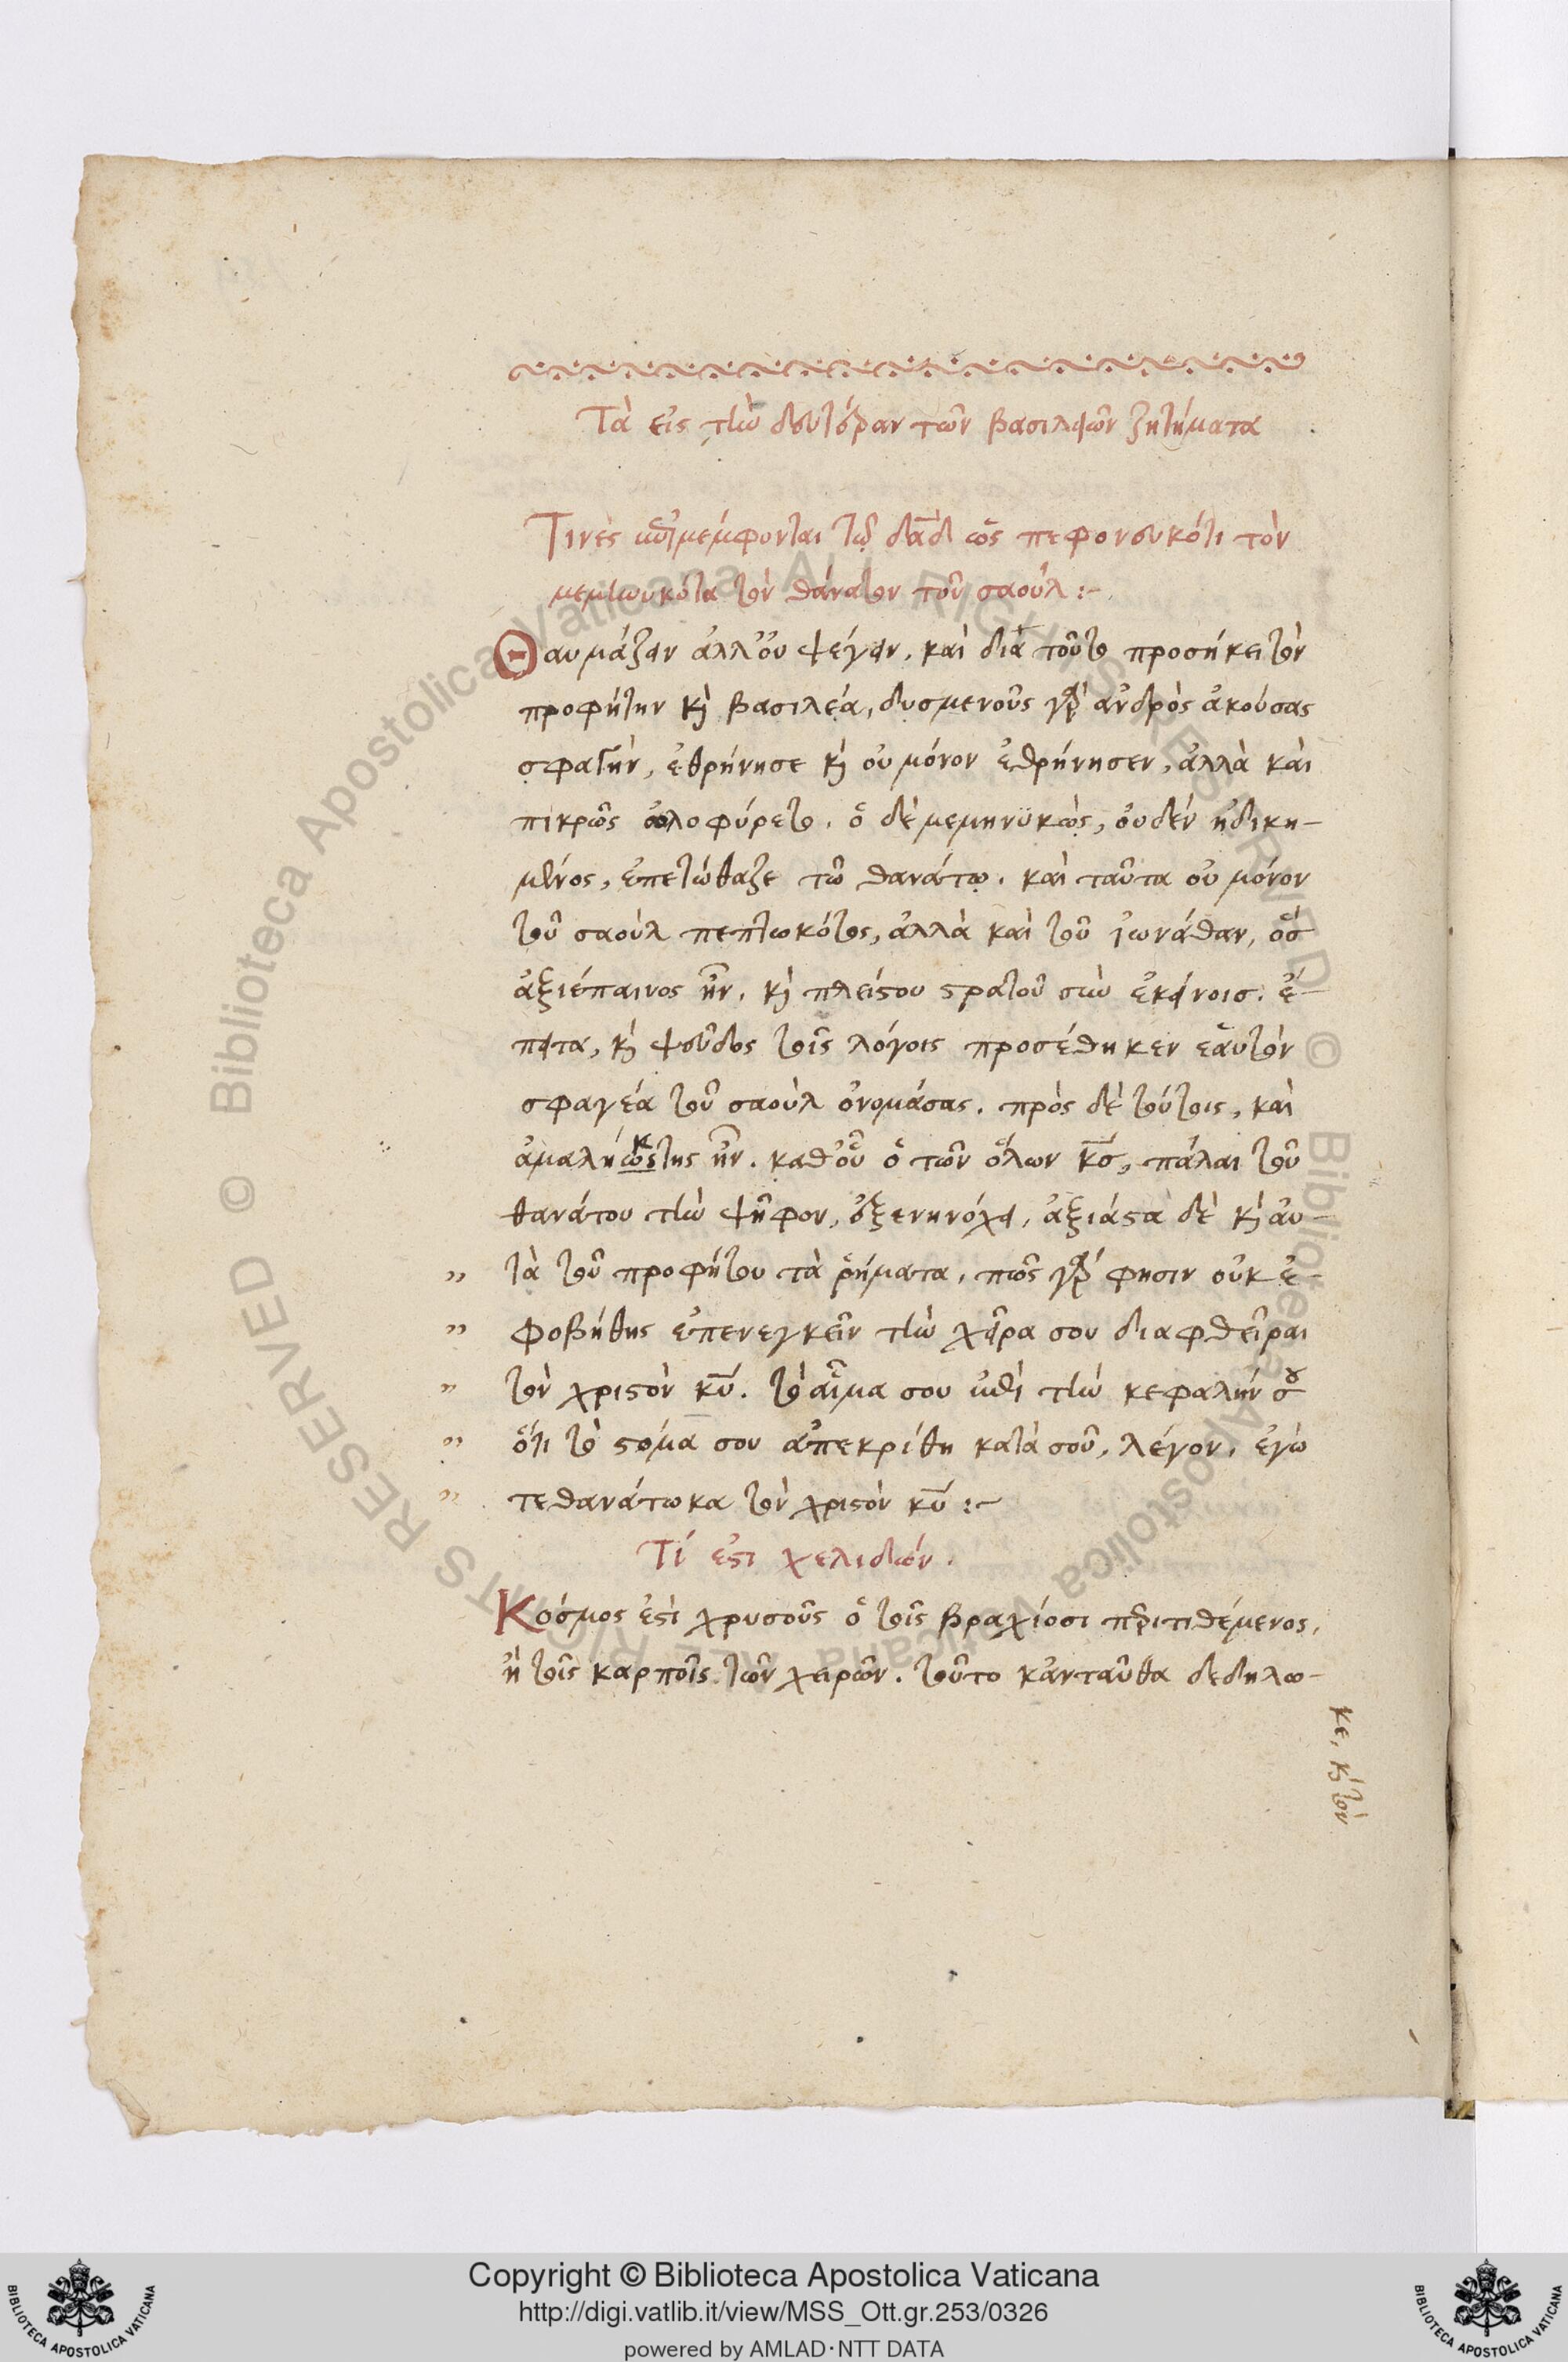 Τὰ εἰς τὴν δευτέραν τῶν βασιλειῶν ζητήματα
Τινὲς μέμφονται τῷ δαδ ὡς πεφονευκότι τὸν
μεμηνυκότα τὸν θάνατον τοῦ σαούλ :~
Θαυμάζειν ἀλλ' οὐ ψέγειν. καὶ διὰ τοῦτο προσήκει τὸν
προφήτην κὶ βασιλέα, δυσμενοῦς γὰρ ἀνδρὸς ἀκούσας
σφαγὴν, ἐθρήνησε κὶ οὐ μόνον ἐθρήνησεν, ἀλλὰ καὶ
πικρῶς ὀλοφύρετο. ὁ δὲ μεμηνϋκὼς, οὐδὲν ἠδικη-
μένος, ἐπετώθαζε τῶ θανάτῳ. καὶ ταῦτα οὐ μόνον
τοῦ σαοὺλ πεπτωκότος, ἀλλὰ καὶ τοῦ ἰωνάθαν, ὃς
ἀξιέπαινος ἦν. κὶ πλείστου στρατοῦ σὺν ἐκείνοις. ἔ-
πειτα, κὶ ψεῦδος τοῖς λόγοις προσέθηκεν ἑαυτὸν
σφαγέα τοῦ σαοὺλ ὀνομάσας. πρὸς δὲ τούτοις, καὶ
ἀμαληκίτης ἦν. καθ' οὗ ὁ τῶν ὅλων κς, πάλαι τοῦ
θανάτου τὴν ψῆφον, ἐξενηνόχει, ἀξιάγαστα δὲ κὶ αὐ-
" τὰ τοῦ προφήτου τὰ ῥήματα, πῶς γάρ φησιν οὐκ ἐ-
" φοβήθης ἐπενεγκεῖν τὴν χεῖρα σου διαφθεῖραι
" τὸν χριστὸν κυ. τὸ αἷμα σου ἐπὶ τὴν κεφαλήν σου
" ὅτι τὸ στόμα σου ἀπεκρίθη κατὰ σοῦ, λέγον, ἐγὼ
" τεθανάτωκα τὸν χριστὸν κυ :~
Τί ἐστι χελιδών.
Κόσμος ἐστὶ χρυσοῦς ὁ τοῖς βραχίοσι περιτιθέμενος,
ἢ τοῖς καρποῖς τῶν χειρῶν. τοῦτο κἀνταῦθα δεδηλω-
κε, κὶ τὸν
Copyright © Biblioteca Apostolica Vaticana
http://digi.vatlib.it/view/MSS_Ott.gr.253/0326
powered by AMLAD·NTT DATA